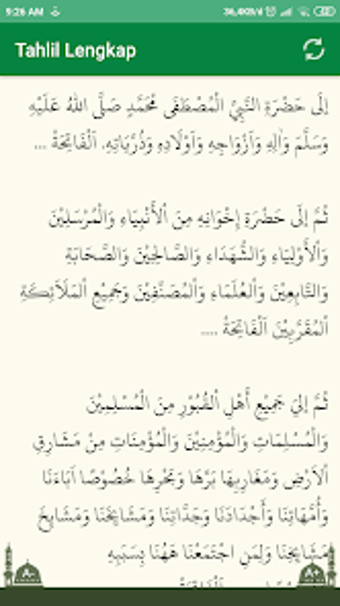 9:26 AM
36,4KB/d
Tahlil Lengkap
إِلَى حَضْرَةِ النَّبِيِّ الْمُصْطَفَى مُحَمَّدٍ صَلَّى اللهُ عَلَيْهِ
وَسَلَّمَ وَاٰلِهِ وَاَزْوَاجِهِ وَاَوْلَادِهِ وَذُرِّيَاتِهِ. اَلْفَاتِحَةُ ...
ثُمَّ اِلَى حَضْرَةِ إِخْوَانِهِ مِنَ الْأَنْبِيَاءِ وَالْمُرْسَلِيْنَ
وَالْأَوْلِيَاءِ وَالشُّهَدَاءِ وَالصَّالِحِيْنَ وَالصَّحَابَةِ
وَالتَّابِعِيْنَ وَالْعُلَمَاءِ وَالْمُصَنِّفِيْنَ وَجَمِيْعِ الْمَلَائِكَةِ
الْمُقَرَّبِيْنَ اَلْفَاتِحَةُ ....
ثُمَّ اِلىَ جَمِيْعِ أَهْلِ الْقُبُوْرِ مِنَ الْمُسْلِمِيْنَ
وَالْمُسْلِمَاتِ وَالْمُؤْمِنِيْنَ وَالْمُؤْمِنَاتِ مِنْ مَشَارِقِ
الْاَرْضِ وَمَغَارِبِهَا بَرِّهَا وَبَحْرِهَا خُصُوْصًا اٰبَاءَنَا
وَأُمَّهَاتِنَا وَأَجْدَادَنَا وَجَدَّاتِنَا وَمَشَايِخَنَا وَمَشَايِخَ
مَشَايِخِنَا وَلِمَنِ اجْتَمَعْنَا هٰهُنَا بِسَبَبِهِ
A-
A+